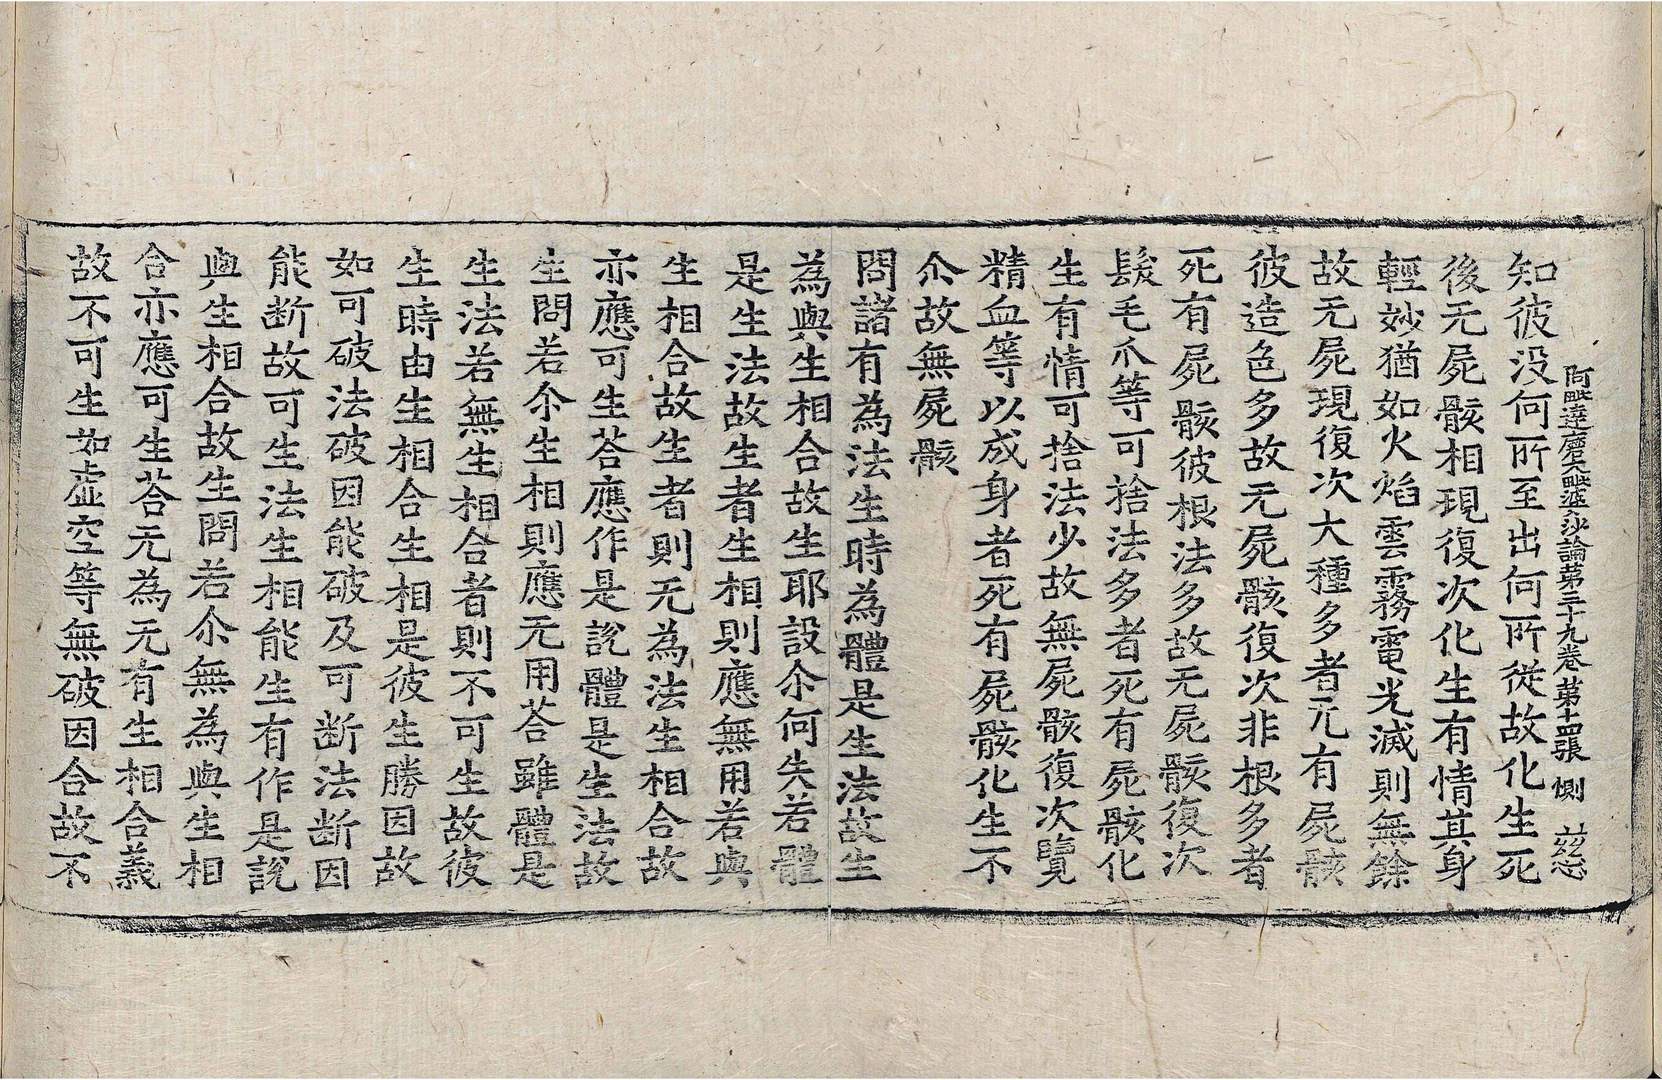 阿毗達磨大毗婆沙論第三十九卷 第十四張 惻
知彼没何所至出何所從故化生死
後无屍骸相現復次化生有情其身
輕妙猶如火焰雲霧電光滅則無餘
故无屍現復次大種多者死有屍骸
彼造色多故无屍骸復次非根多者
死有屍骸彼根法多故无屍骸復次
髮毛爪等可捨法多者死有屍骸化
生有情可捨法少故無屍骸復次覽
精血等以成身者死有屍骸化生不
尒故無屍骸
問諸有為法生時為體是生法故生
為與生相合故生耶設尒何失若體
是生法故生者生相則應無用若與
生相合故生者則无為法生相合故
亦應可生荅應作是說體是生法故
生問若尒生相則應无用荅雖體是
生法若無生相合者則不可生故彼
生時由生相合生相是彼生勝因故
如可破法破因能破及可断法断因
能断故可生法生相能生有作是說
與生相合故生問若尒無為與生相
合亦應可生荅无為无有生相合義
故不可生如虛空等無破因合故不